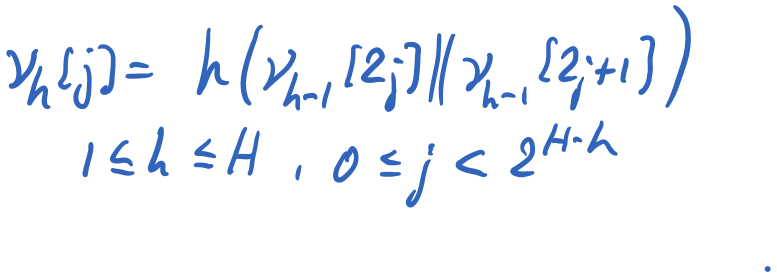 ν_h[j] = h(ν_{h-1}[2j]‖ν_{h-1}[2j+1])
1 ≤ h ≤ H , 0 ≤ j < 2^{H-h}
.